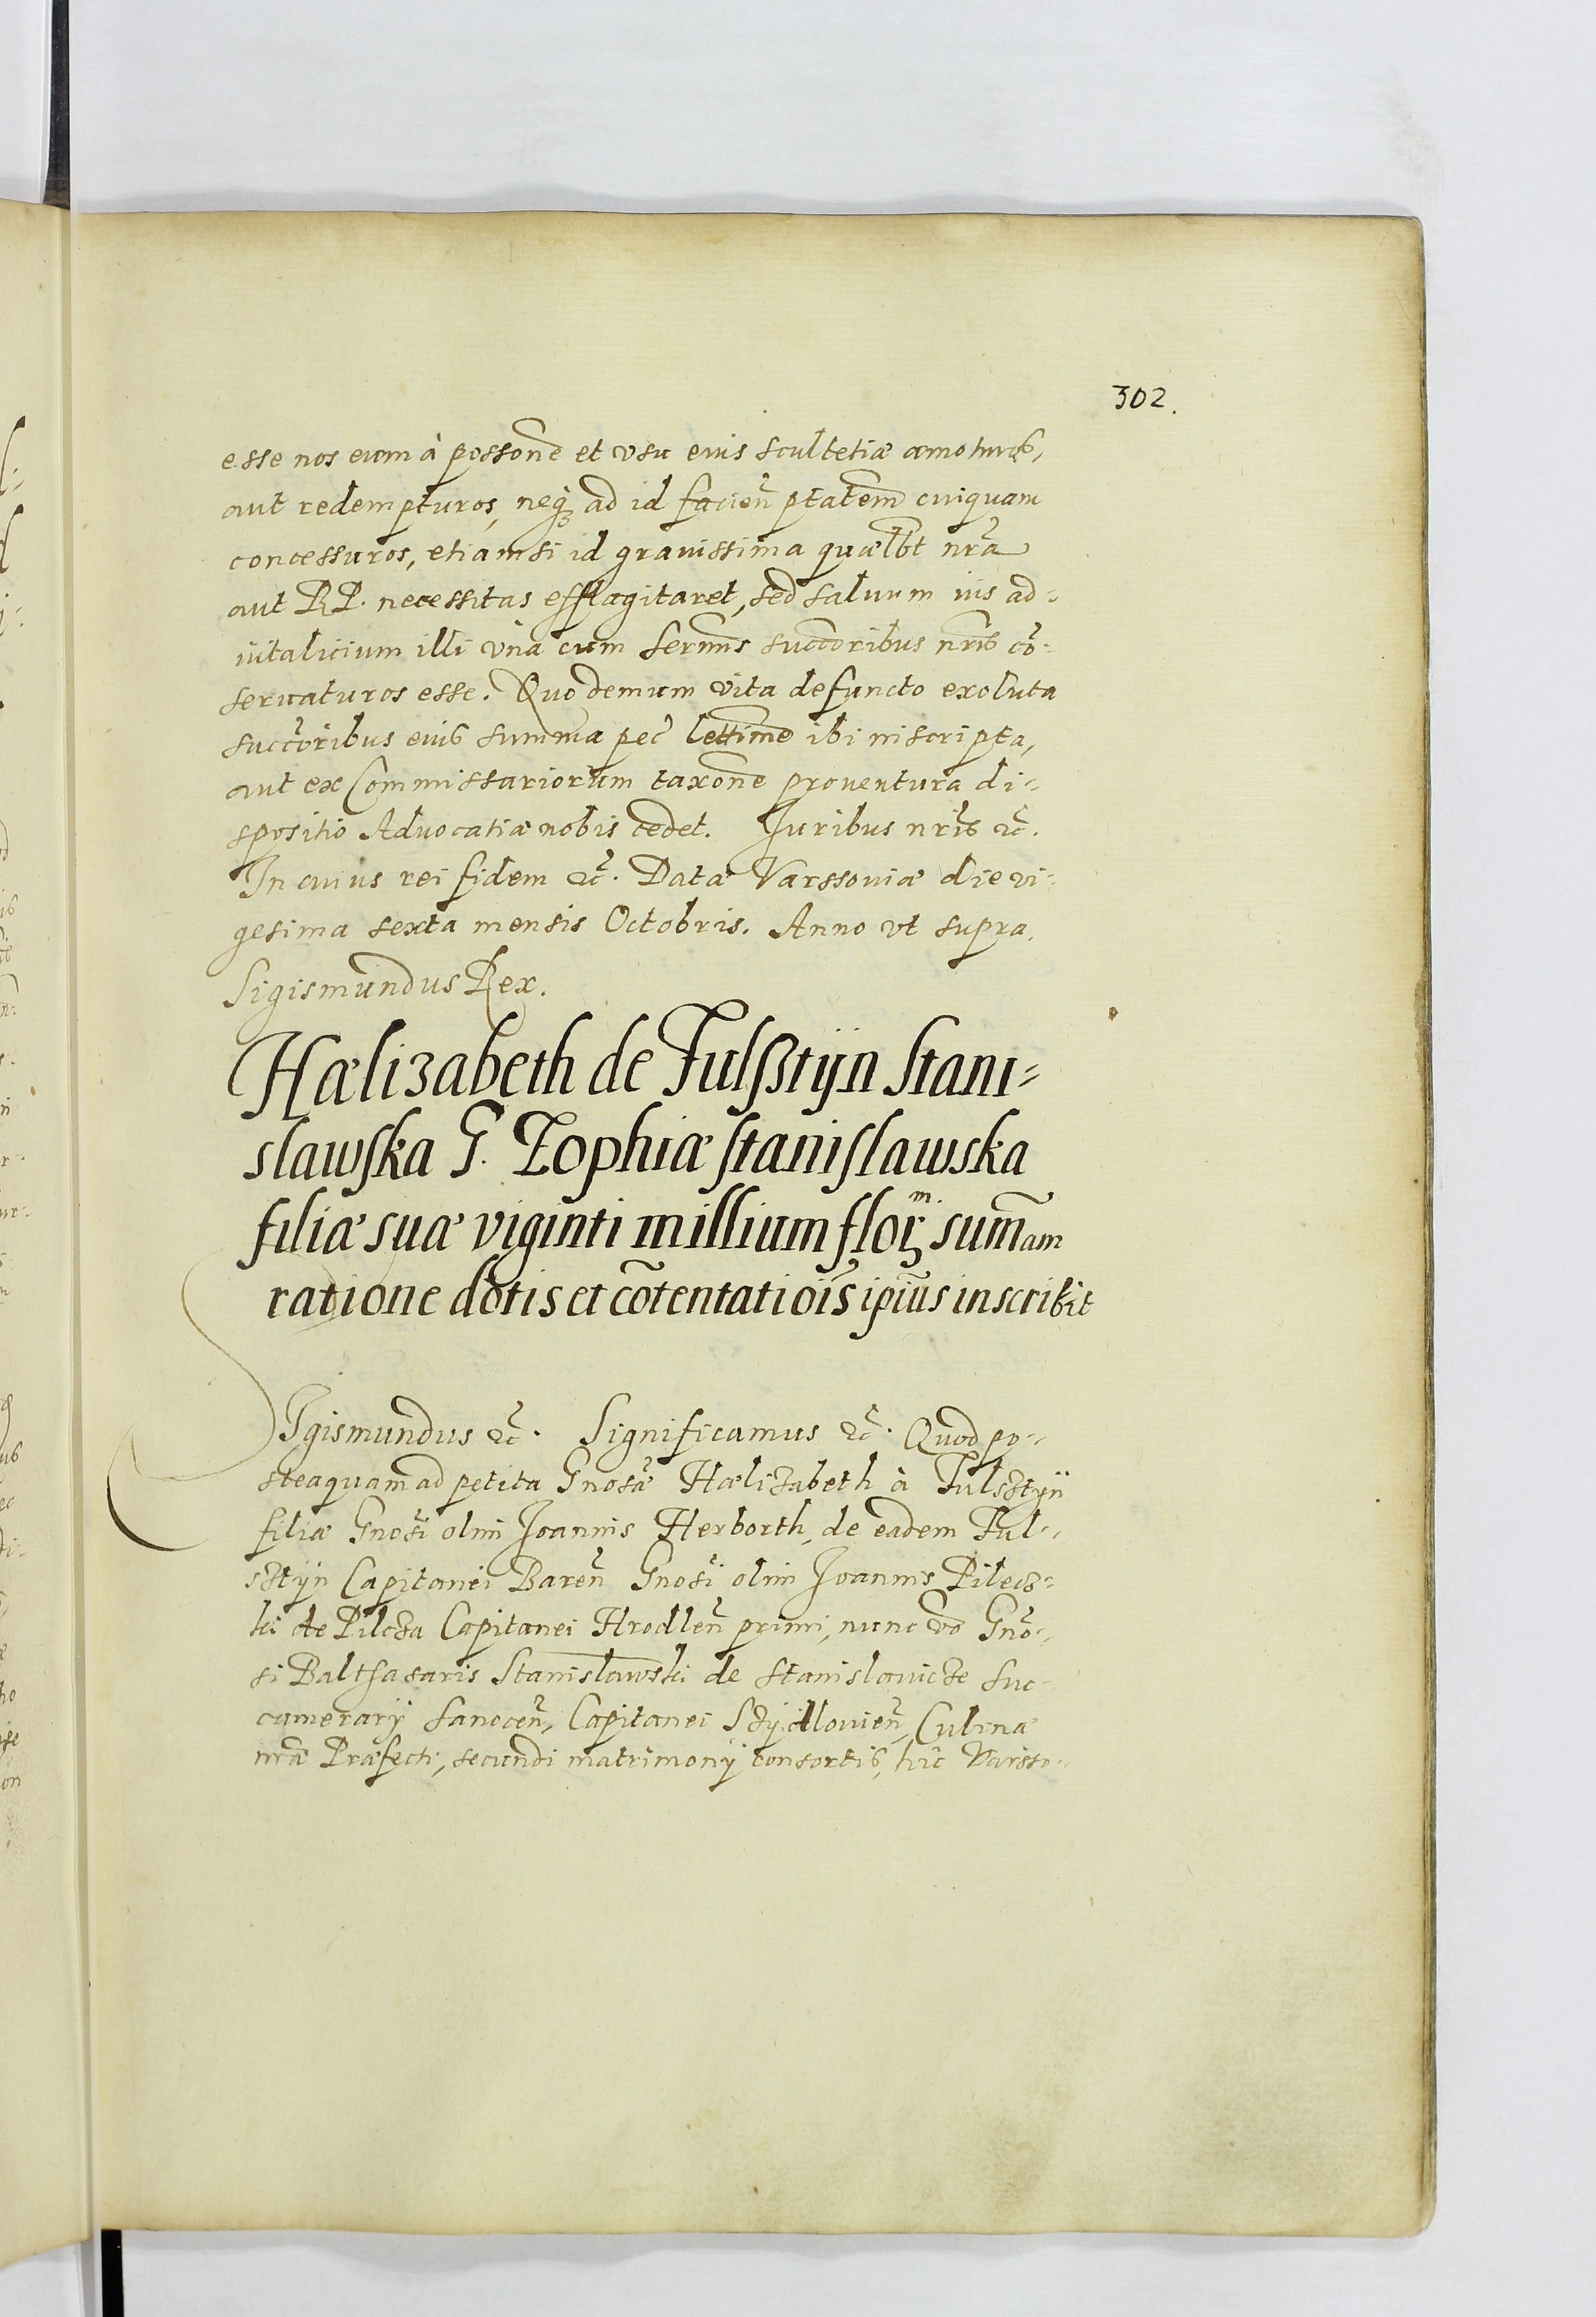 302.
esse nos eum à possone͂ et vsu eius scultetiæ amoturos,
aut redempturos, neqꝫ ad id facien͂ ptatem͂ cuiquam
concessuros, etiamsi id gravissima quælbt nr͂a
aut RP. necessitas efflagitaret, sed saluum ius ad-
vitalicium illi vna cum serm͂is succ͂oribus nr͂is co͂-
servaturos esse. Quo demum vita defuncto exoluta
succ͂oribus eius summa pec͂ letti͂me ibi inscripta,
aut ex Commissariorum taxone͂ proventura di-
spositio Advocatiæ nobis cedet. Juribus nr͂is &c͂.
In cuius rei fidem &c͂. Datæ Varssoviæ die vi-
gesima sexta mensis Octobris. Anno vt supra.
Sigismundus Rex.
Hælizabeth de Fulßtÿn Stani-
slawska G. Zophiæ Stanislawska
filiæ suæ viginti millium florm. sum͂am
ratione dotis et co͂tentatiois͂ ipiu͂s inscribit
SIgismundus &c͂. Significamus &c͂. Quod po-
steaquam ad petita Gnosæ͂ Hælizabeth à Fulsztÿn
filiæ Gnosi͂ olim Joannis Herborth, de eadem Ful-
sztÿn Capitanei Baren͂ Gnosi͂ olim Joannis Pilecz-
ki de Pilcza Capitanei Hrodlen͂ primi, nunc vo͂ Gno͂-
si Balthasaris Stanislawski de Stanislavicze Suc-
camerarÿ Sanocen͂, Capitanei Szydlovien͂, Culinæ
nr͂æ Præfecti, secundi matrimonÿ consortis, hic͂ Varsso-